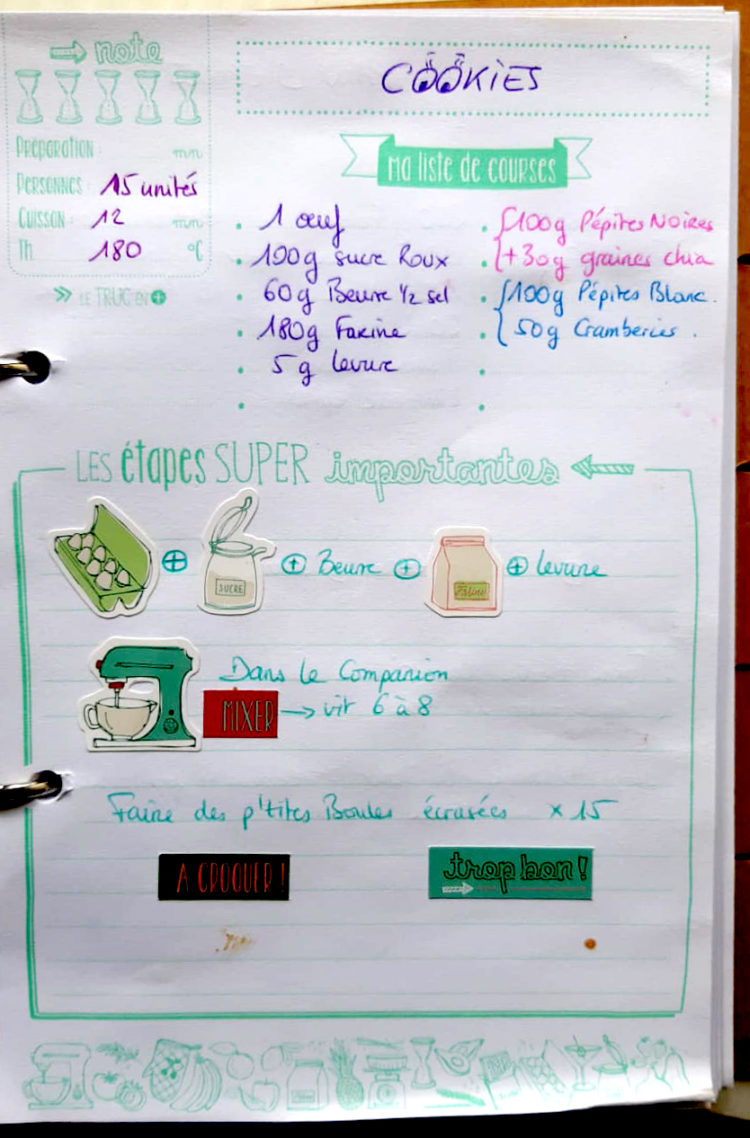 note
COOKIES
Préparation : mn
Personnes : 15 unités
Cuisson : 12 mn
Th. 180 °C
>> LE TRUC EN +
Ma liste de courses
• 1 œuf
• 100g sucre Roux
• 60g Beurre 1/2 sel
• 180g Farine
• 5g levure
•
• {100g Pépites Noires
• {+30g graines chia
• {100g Pépites Blanc.
• {50g Cramberies.
•
•
LES étapes SUPER importantes
+ SUCRE + Beurre + Farine + levure
Dans le Companion
MIXER → vit 6 à 8
Faire des p'tites Boules écrasées x 15
A CROQUER !
trop bon !